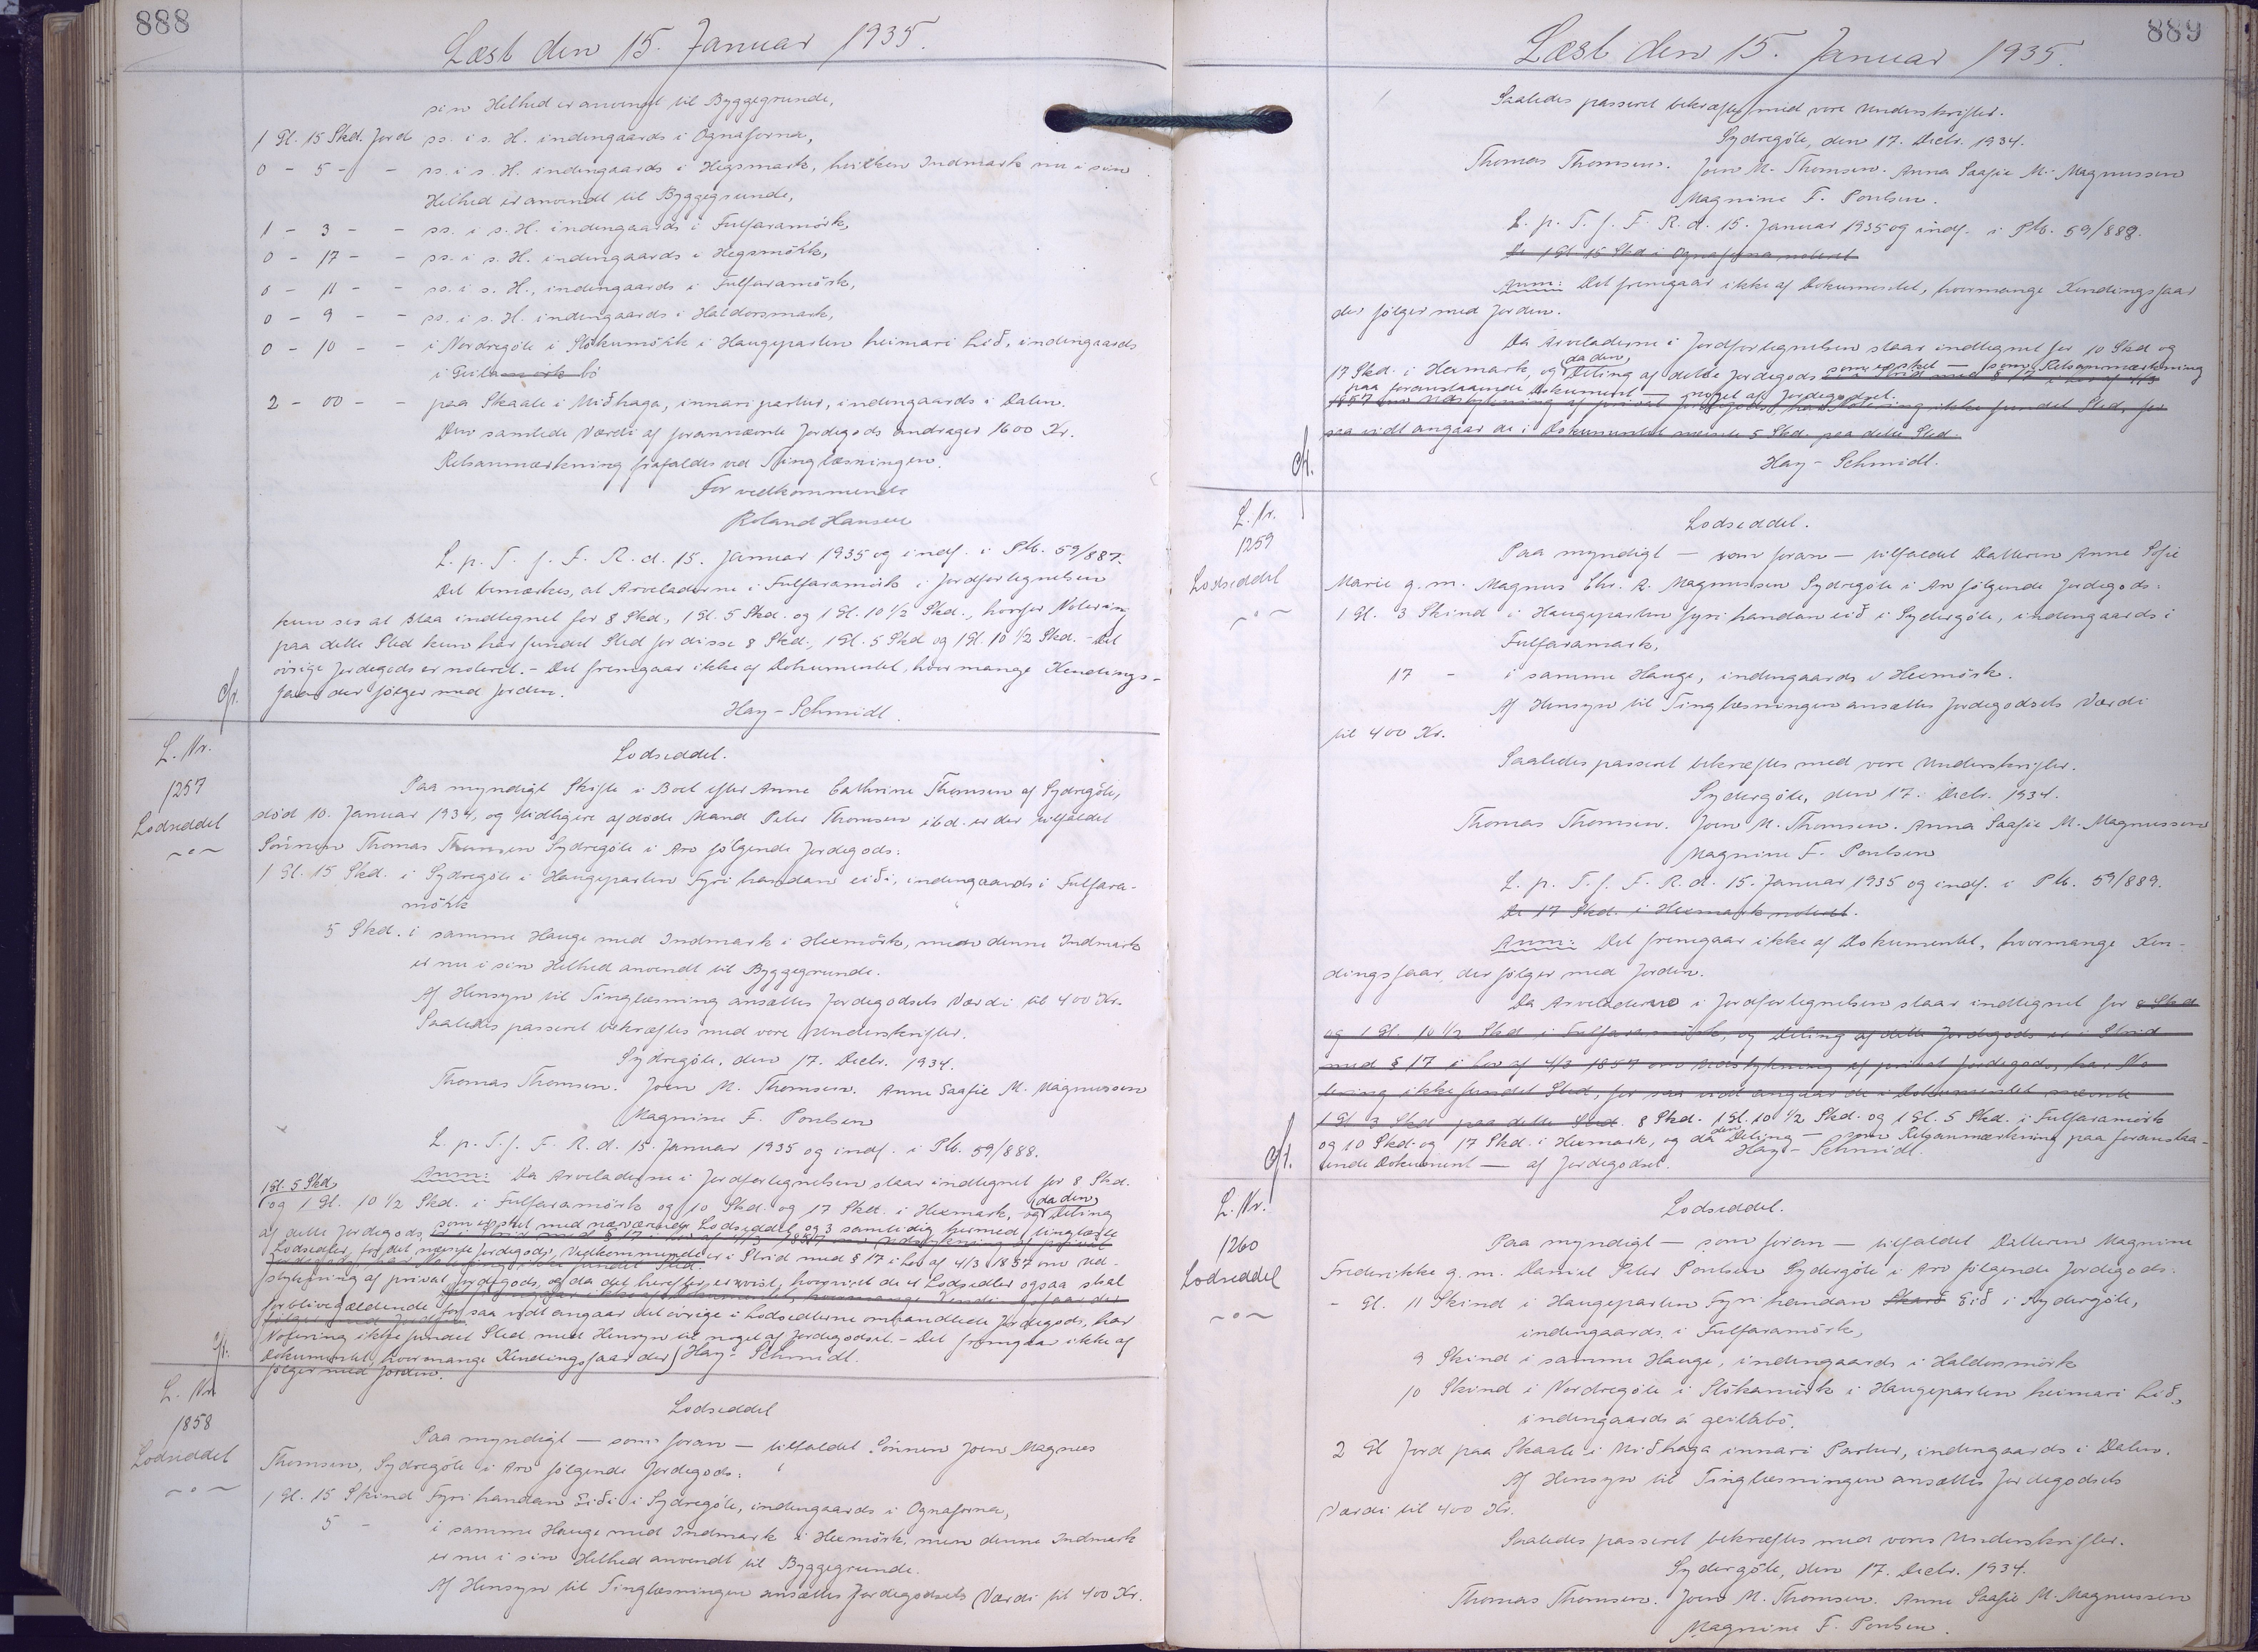 888
Læst den 15. Januar 1935.
sin Helhed er anvendt til Byggegrunde,
1 Gl. 15 Skd. Jord ss. i s. H. indengaards i Ognaforna,
0 - 5 - - ss. i s. H. indengaards i Hegsmark, hvilken Indmark nu i sin
Helhed er anvendt til Byggegrunde,
1 - 3 - - ss. i s. H. indengaards i Fulfaramörk,
0 - 17 - - ss. i s. H. indengaards i Hegsmörk,
0 - 11 - - ss. i s. H., indengaards i Fulfaramörk,
0 - 9 - - ss. i s. H. indengaards i Haldorsmark,
0 - 10 - - i Nordregöte i Stökumörk i Haugeparten heimari Lið, indengaards
i Geilamörk bö
2 - 00 - - paa Skaale i Miðhaga, innari partur, indengaards i Dalen.
Den samlede Værdi af forannævnte Jordegods andrager 1600 Kr.
Retsanmærkning frafaldes ved Tinglæsningen.
For vedkommende
Roland Hansen
L. p. T. f. F. R. d. 15. Januar 1935 og indf. i Pb. 59/887.
Det bemærkes, at Arveladerne i Fulfaramörk i Jordfortegnelsen
kun ses at staa indtegnet for 8 Skd, 1 Gl. 5 Skd. og 1 Gl. 10 1/2 Skd., hvorfor Notering
paa dette Sted kun har fundet Sted for disse 8 Skd., 1 Gl. 5 Skd og 1 Gl. 10 1/2 Skd. - Det
övrige Jordegods er noteret. - Det fremgaar ikke af Dokumentet, hvor mange Kendings-
faar der fölger med Jorden.
Cfr.
Hay-Schmidt.
L. Nr.
1257
Lodseddel
Lodseddel.
Paa myndigt Skifte i Boet efter Anne Cathrine Thomsen af Sydregöte,
död 10. Januar 1934, og tidligere afdöde Mand Peter Thomsen ibd. er der tilfaldet
Sönnen Thomas Thomsen Sydregöte i Arv fölgende Jordegods:
1 Gl. 15 Skd. i Sydregöte i Haugeparten Fyri handan eiði, indengaards i Fulfara-
mörk
5 Skd. i samme Hauge med Indmark i Hexmörk, men denne Indmark
er nu i sin Helhed anvendt til Byggegrunde.
Af Hensyn til Tinglæsning ansættes Jordegodsets Værdi til 400 Kr.
Saaledes passeret bekræftes med vore Underskrifter.
Sydregöte, den 17. Decbr. 1934.
Thomas Thomsen. Joen M. Thomsen. Anne Saafie M. Magnussen
Magnine F. Poulsen
L. p. T. f. F. R. d. 15. Januar 1935 og indf. i Pb. 59/888.
Anm: Da Arveladerne i Jordfortegnelsen staar indtegnet for 8 Skd.
1 Gl. 5 Skd
og 1 Gl. 10 1/2 Skd. i Fulfaramörk og 10 Skd. og 17 Skd. i Hexmark, og da den Deling
af dette Jordegods, som er sket med nærværende Lodseddel og 3 samtidig hermed tinglæste
Lodsedler, for det næste Jordegods, Vedkommende er i Strid med § 17 i Lov af 4/3 1857 om Ud-
stykning af privat Jordegods, og da det herefter er uvist, hvorvidt de 4 Lodsedler ogsaa skal
forblive gældende, for saa vidt angaar det övrige i Lodsedlerne omhandlede Jordegods, har
Notering ikke fundet Sted med Hensyn til noget af Jordegodset. - Det fremgaar ikke af
Dokumentet, hvor mange Kendingsfaar der
fölger med Jorden.
Cfr.
Hay-Schmidt.
L. Nr.
1858
Lodseddel
Lodseddel
Paa myndigt — som foran — tilfaldet Sönnen Joen Magnus
Thomsen, Sydregöte i Arv fölgende Jordegods:
1 Gl. 15 Skind Fyri handan Eiði i Sydregöte, indengaards i Ognaforna,
5 - i samme Hauge med Indmark i Hexmörk, men denne Indmark
er nu i sin Helhed anvendt til Byggegrunde.
Af Hensyn til Tinglæsningen ansættes Jordegodsets Værdi til 400 Kr.
889
Læst den 15. Januar 1935.
Saaledes passeret bekræftes med vore Underskrifter.
Sydregöte, den 17. Decbr. 1934.
Thomas Thomsen. Joen M. Thomsen. Anna Saafie M. Magnussen
Magnine F. Poulsen.
L. p. T. f. F. R. d. 15. Januar 1935 og indf. i Pb. 59/888.
De 1 Gl. 15 Skd i Ognaforna noteret.
Anm: Det fremgaar ikke af Dokumentet, hvormange Kendingsfaar
der fölger med Jorden.
Da Arveladerne i Jordfortegnelsen staar indtegnet for 10 Skd og
17 Skd. i Hexmark, og da den Deling af dette Jordegods som er sket — som Retsanmærkning
paa foranstaaende Dokument — noget af Jordegodset.
1857 om Udstykning af privat Jordegods, har Notering ikke fundet Sted, for
saa vidt angaar de i Dokumentet nævnte 5 Skd. paa dette Sted.
Cfr.
Hay-Schmidt.
L. Nr.
1259
Lodseddel
Lodseddel.
Paa myndigt — som foran — tilfaldet Datteren Anne Sofie
Marie g. m. Magnus Chr. R. Magnussen Sydregöte i Arv fölgende Jordegods:
1 Gl. 3 Skind i Haugeparten fyri handan eið i Sydergöte, indengaards i
Fulfaramark,
17 - i samme Hauge, indengaards i Hexmörk.
Af Hensyn til Tinglæsningen ansættes Jordegodsets Værdi
til 400 Kr.
Saaledes passeret bekræftes med vore Underskrifter.
Sydergöte, den 17. Decbr. 1934.
Thomas Thomsen. Joen M. Thomsen. Anna Saafie M. Magnussen
Magnine F. Poulsen
L. p. T. f. F. R. d. 15. Januar 1935 og indf. i Pb. 59/889.
De 17 Skd. i Hexmark noteret.
Anm: Det fremgaar ikke af Dokumentet, hvormange Ken-
dingsfaar, der fölger med Jorden.
Da Arveladerne i Jordfortegnelsen staar indtegnet for 8 Skd
og 1 Gl. 10 1/2 Skd i Fulfaramörk, og Deling af dette Jordegods er i Strid
med § 17 i Lov af 4/3 1857 om Udstykning af privat Jordegods, har No-
tering ikke fundet Sted, for saa vidt angaar de i Dokumentet nævnte
1 Gl 3 Skd paa dette Sted. 8 Skd. 1 Gl. 10 1/2 Skd. og 1 Gl. 5 Skd. i Fulfaramörk
og 10 Skd. og 17 Skd. i Hexmark, og da den Deling — som Retsanmærkning paa foranstaa-
ende Dokument — af Jordegodset.
Cfr.
Hay-Schmidt.
L. Nr.
1260
Lodseddel
Lodseddel.
Paa myndigt — som foran — tilfaldet Datteren Magnine
Frederikke g. m. Daniel Peter Poulsen Sydergöte i Arv fölgende Jordegods:
- Gl. 11 Skind i Haugeparten Fyri handan Skarð Eið i Sydergöte,
indengaards i Fulfaramörk,
9 Skind i samme Hauge, indengaards i Haldorsmörk
10 Skind i Nordregöte i Stökamörk i Haugeparten heimari Lið,
indengaards á geilabö.
2 Gl Jord paa Skaale i Miðhaga innari Partur, indengaards i Dalen.
Af Hensyn til Tinglæsningen ansættes Jordegodsets
Værdi til 400 Kr.
Saaledes passeret bekræftes med vores Underskrifter.
Sydergöte, den 17. Decbr. 1934.
Thomas Thomsen. Joen M. Thomsen. Anne Saafie M. Magnussen
Magnine F. Poulsen.